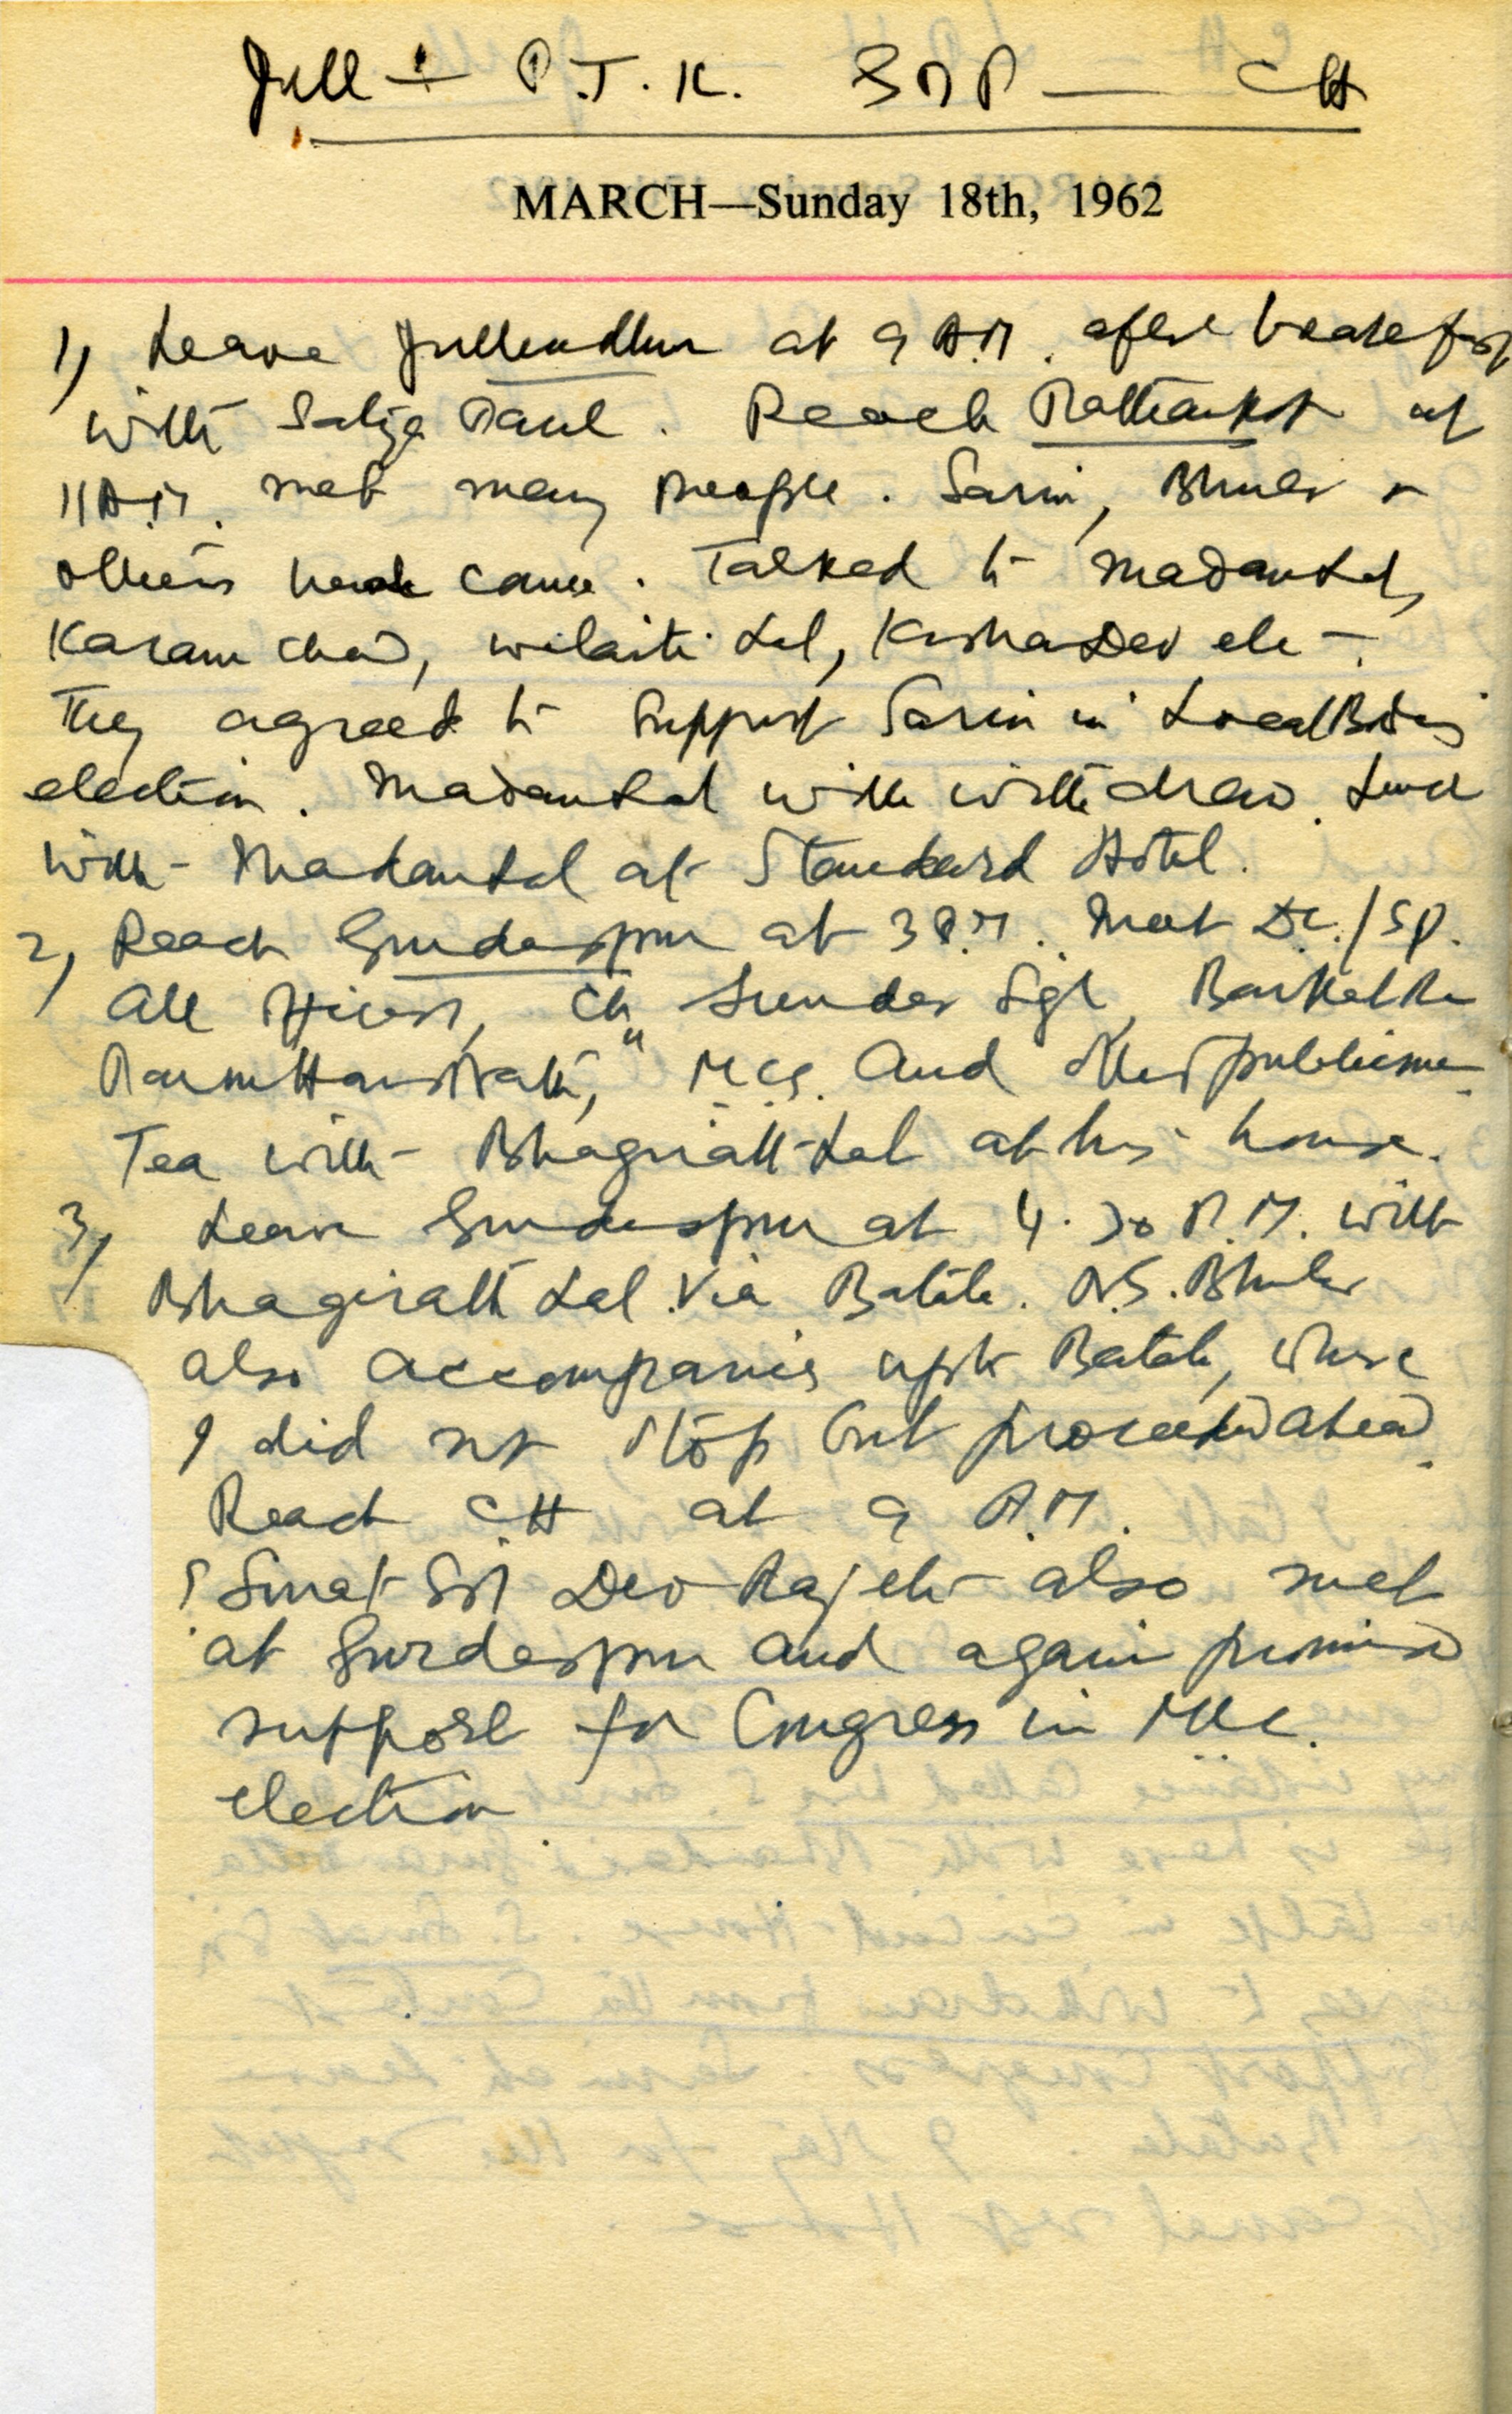 Jull — P.T.K. GDP — CH
MARCH—Sunday 18th, 1962
1) Leave Jullundhur at 9 A.M. after breakfast
with Satya Paul. Reach Pathankot at
11 A.M. met many people. Sarin, Bhuler &
others had come. Talked to Madan Lal,
Karam Chad, Wilaiti Lal, Krishan Dev etc.
They agreed to support Sarin in Local Bodies
election. Madan Lal will withdraw. Lunch
with Madan Lal at Standard Hotel.
2) Reach Gurdaspur at 3 P.M. Meet D.C./S.P.
All officers, Ch. Sunder Sgh,
" M.C.s. and other public men.
Tea with Bhagirath Lal at his house.
3) Leave Gurdaspur at 4.30 P.M. with
Bhagirath Lal via Batala. Bhuler
also accompanies upto Batala, where
I did not stop but proceeded ahead.
Reach CH at 9 P.M.
Surat Sgh Dev Raj etc also met
at Gurdaspur and again promised
support for Congress in MLC.
election.